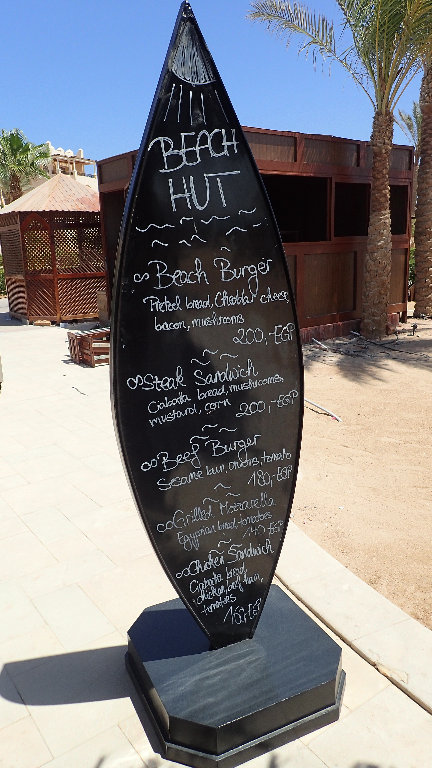 BEACH
HUT
Beach Burger
Pretzel bread, Cheddar cheese
bacon, mushrooms
200,-EGP
Steak Sandwich
Ciabatta bread, mushrooms
mustard, corn
200,-EGP
Beef Burger
Sesame bun, onions, tomato
180,-EGP
Grilled Mozzarella
Egyptian bread, tomatoes
140,-EGP
Chicken Sandwich
Ciabatta bread,
chicken, beef
tomatoes